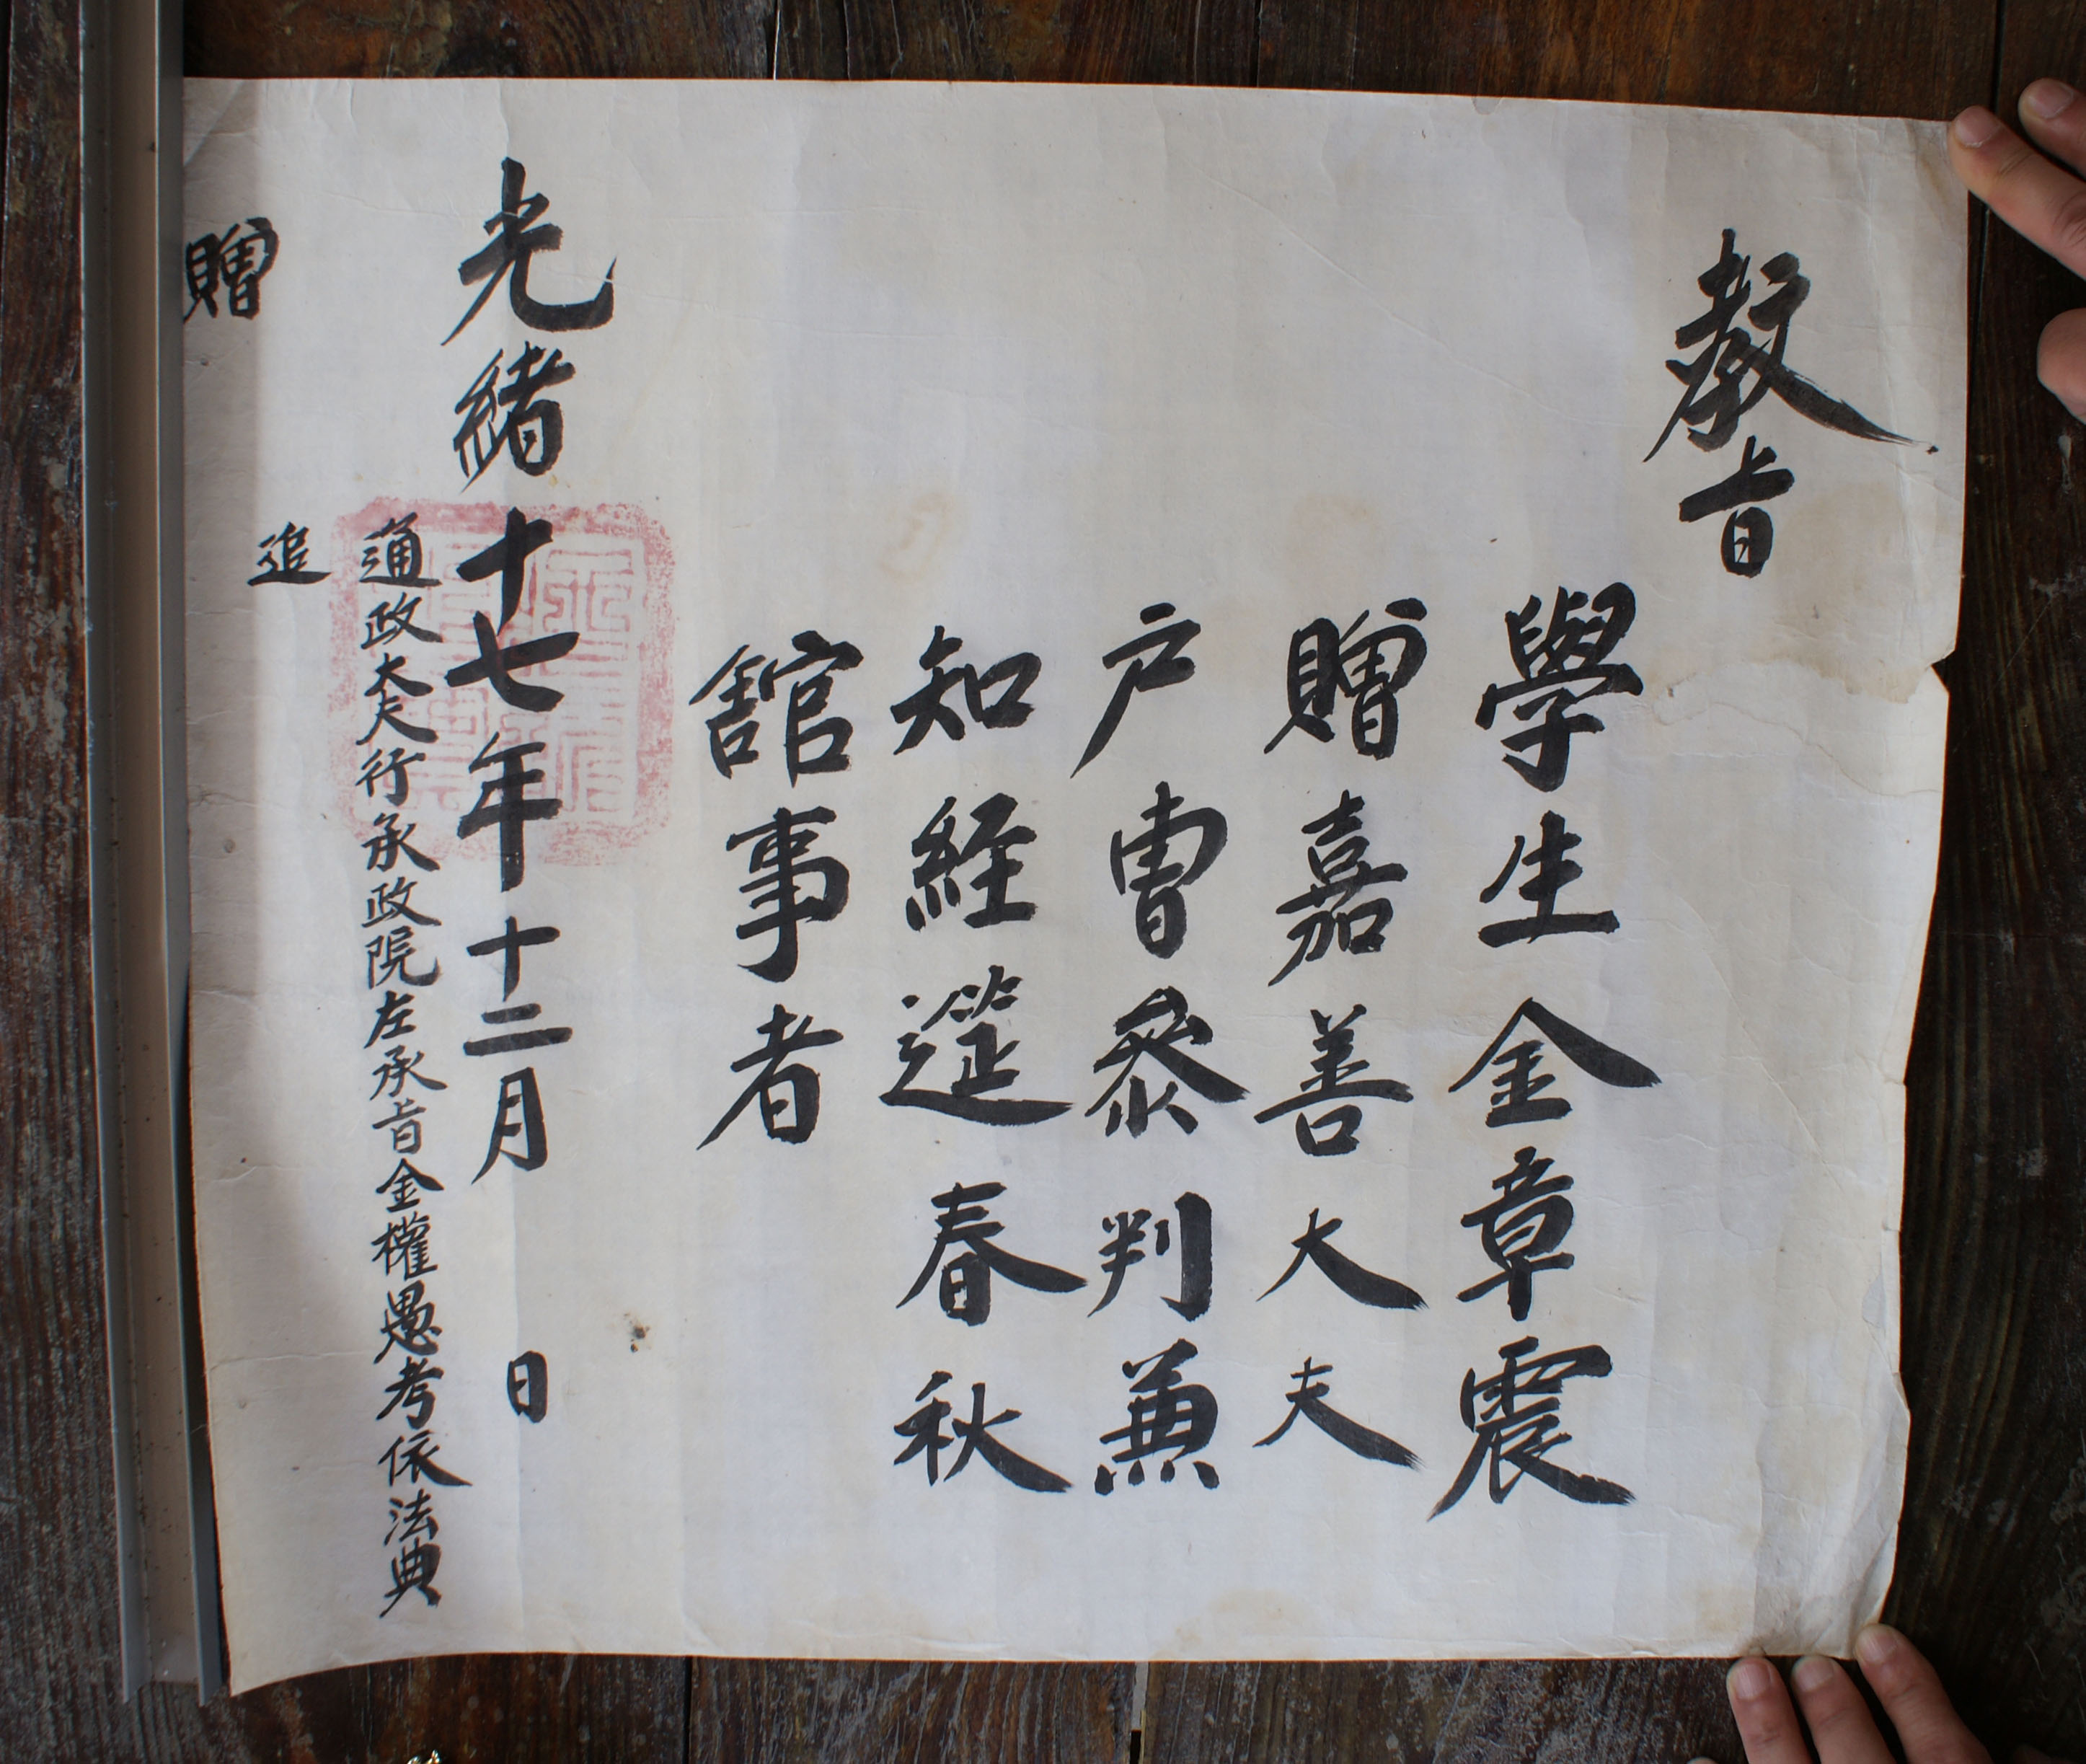 教旨
學生金章震
贈嘉善大夫
戶曹叅判兼
知経筵春秋
舘事者
光緒十七年十二月 日
通政大夫行承政院左承旨金權愚考依法典
追
贈